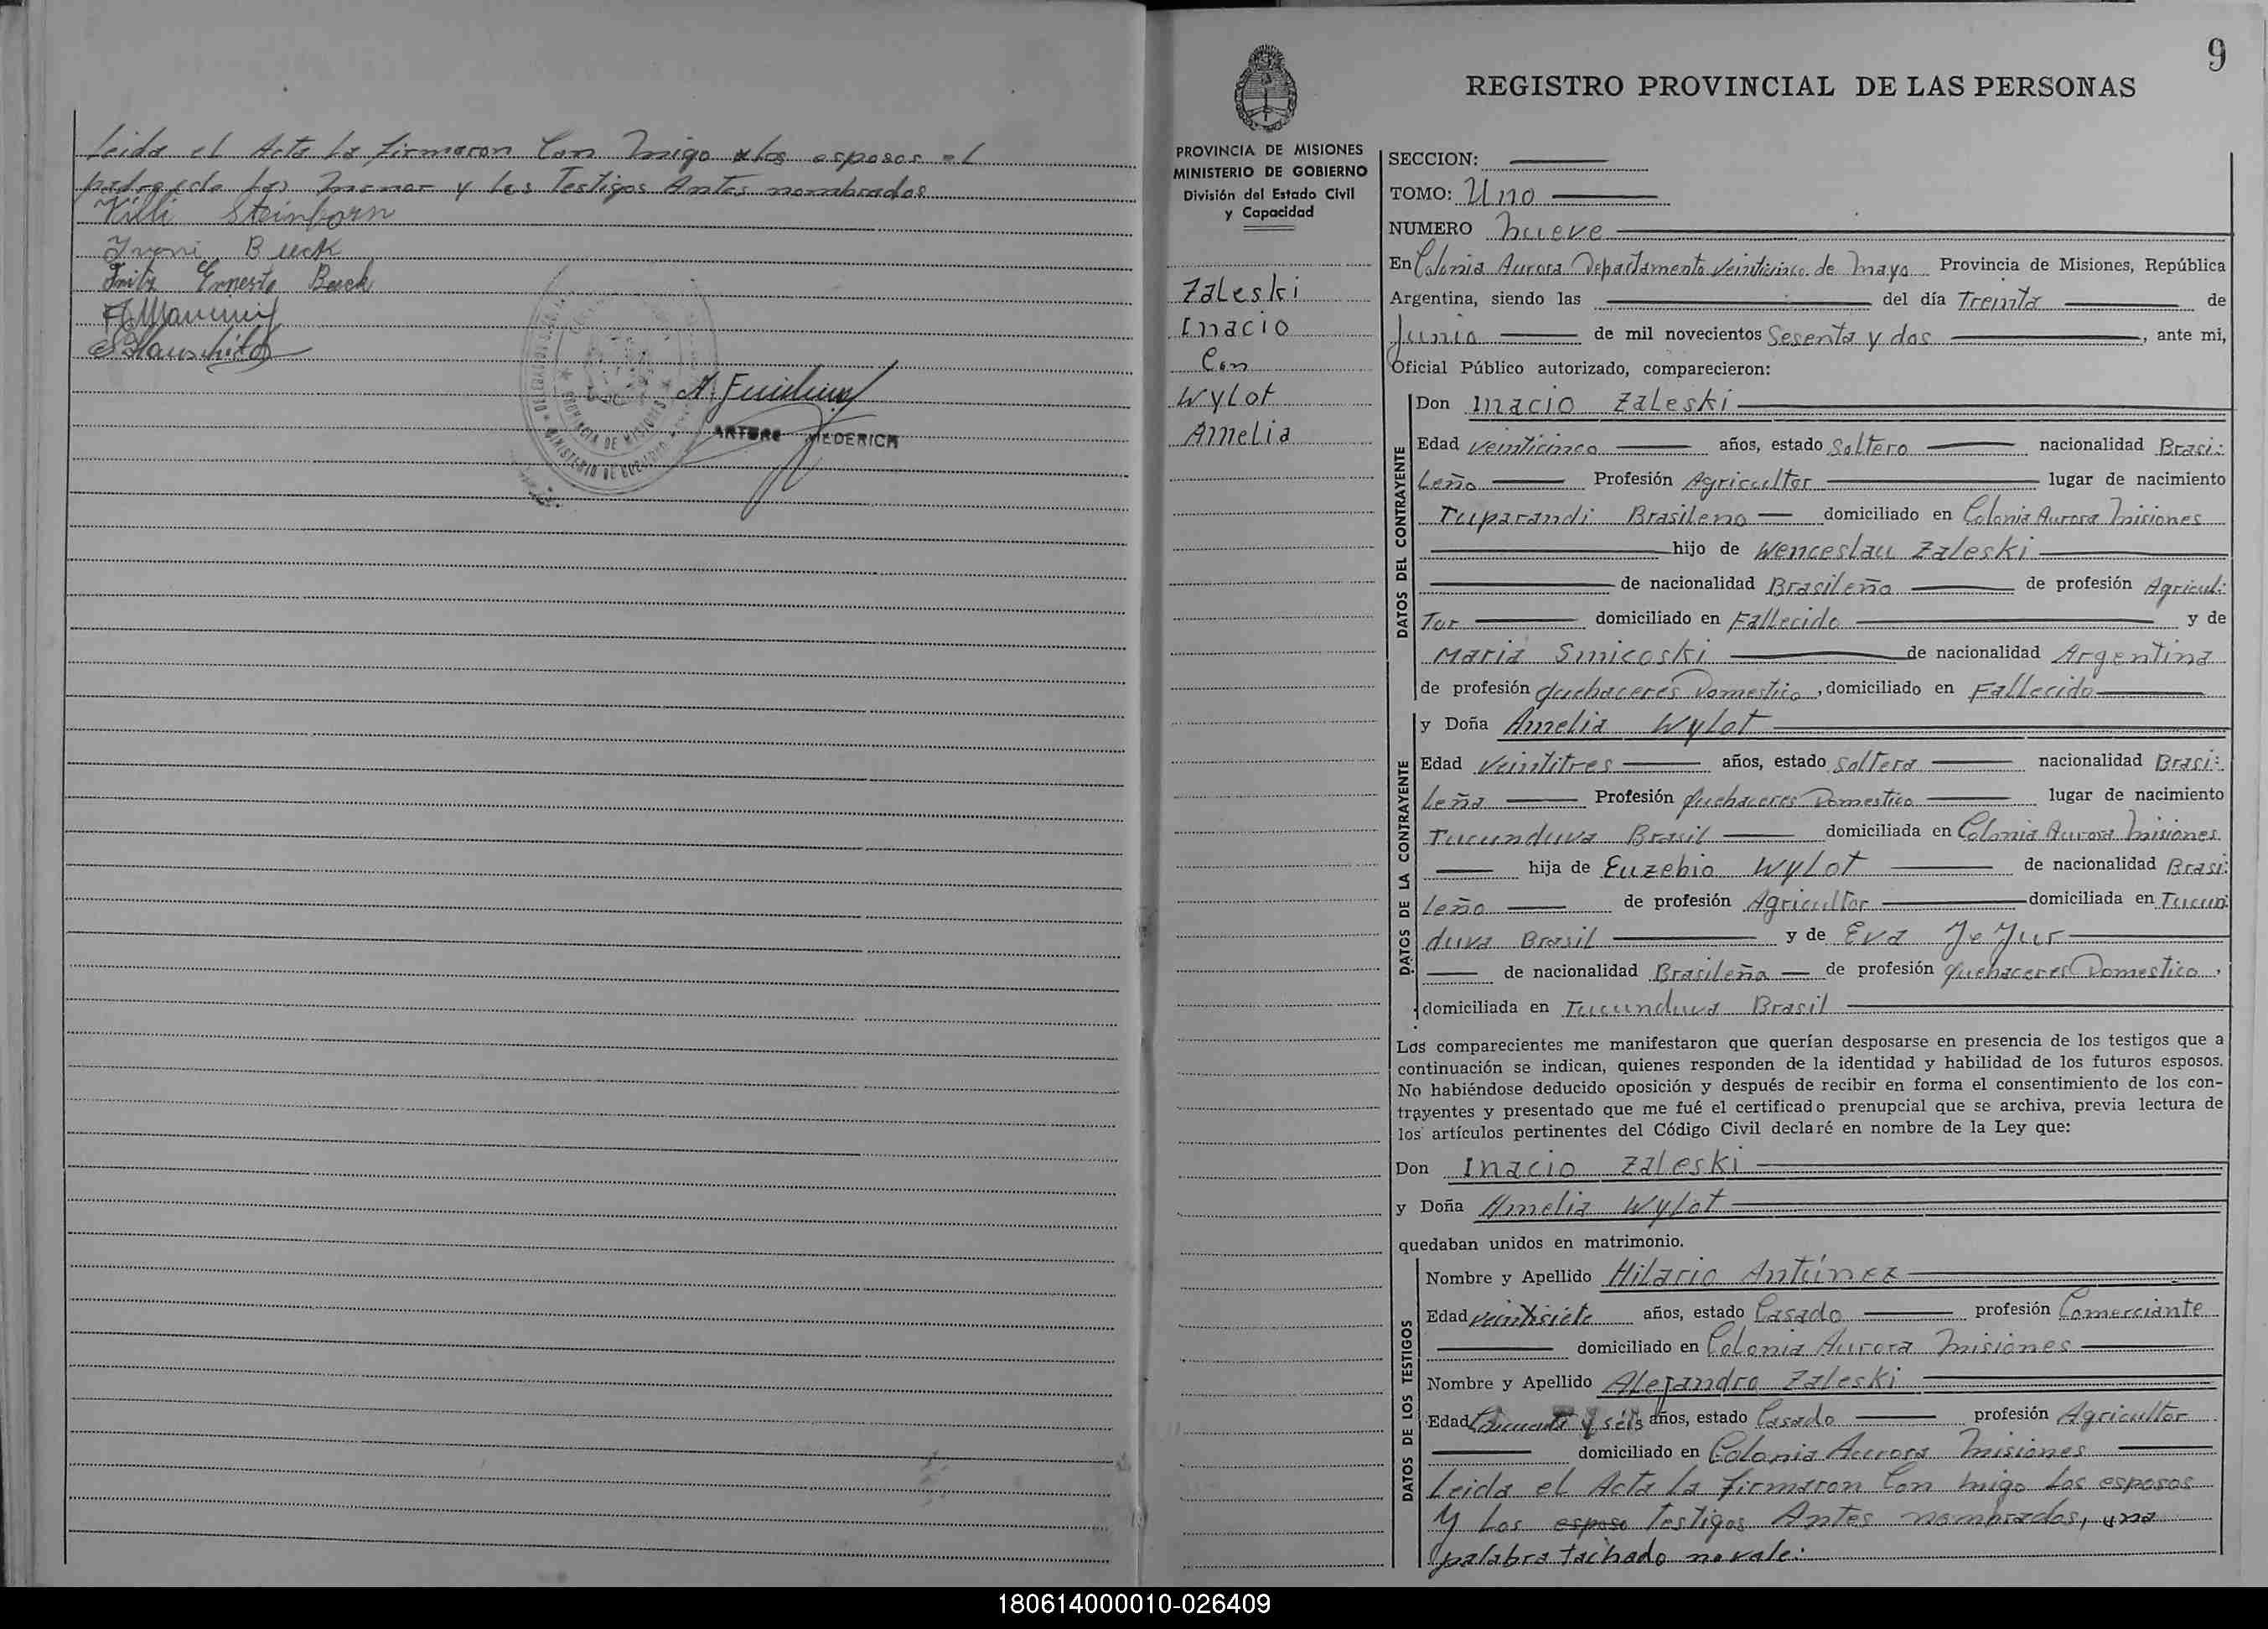 Leida el Acta la firmaron Con migo los esposos el
padre (de la) menor y los Testigos Antes nombrados
Willi Steinhorn
Ivoni Beeck
Fritz Ernesto Beeck
ARTURO
DELEGACION
PROVINCIA DE MISIONES
MINISTERIO DE GOBIERNO
9
REGISTRO PROVINCIAL DE LAS PERSONAS
PROVINCIA DE MISIONES
MINISTERIO DE GOBIERNO
División del Estado Civil
y Capacidad
Zaleski
Inacio
Con
Wylot
Amelia
SECCION:
TOMO: Uno
NUMERO nueve
En Colonia Aurora Departamento Veinticinco de mayo Provincia de Misiones, República
Argentina, siendo las del día Treinta de
Junio de mil novecientos Sesenta y dos, ante mi,
Oficial Público autorizado, comparecieron:
DATOS DEL CONTRAYENTE
Don Inacio Zaleski
Edad veinticinco años, estado Soltero nacionalidad Brasi:
leño Profesión Agricultor lugar de nacimiento
Tuparandi Brasileno domiciliado en Colonia Aurora Misiones
hijo de Wenceslau Zaleski
de nacionalidad Brasileño de profesión Agricul:
Tor domiciliado en Fallecido y de
Maria Smicoski de nacionalidad Argentina
de profesión quehaceres Domestico, domiciliado en Fallecido
DATOS DE LA CONTRAYENTE
y Doña Amelia Wylot
Edad Veintitres años, estado Soltera nacionalidad Brasi:
Leña Profesión quehaceres Domestico lugar de nacimiento
Tucunduva Brasil domiciliada en Colonia Aurora Misiones
hija de Euzebio Wylot de nacionalidad Brasi:
leño de profesión Agricultor domiciliada en Tucun:
duva Brasil y de Eva Je Jur
de nacionalidad Brasileña de profesión quehaceres Domestico,
domiciliada en Tucunduva Brasil
Los comparecientes me manifestaron que querían desposarse en presencia de los testigos que a
continuación se indican, quienes responden de la identidad y habilidad de los futuros esposos.
No habiéndose deducido oposición y después de recibir en forma el consentimiento de los con-
trayentes y presentado que me fué el certificado prenupcial que se archiva, previa lectura de
los artículos pertinentes del Código Civil declaré en nombre de la Ley que:
Don Inacio Zaleski
y Doña Amelia Wylot
quedaban unidos en matrimonio.
DATOS DE LOS TESTIGOS
Nombre y Apellido Hilario Antúnez
Edad veintisiete años, estado Casado profesión Comerciante
domiciliado en Colonia Aurora Misiones
Nombre y Apellido Alejandro Zaleski
Edad Cincuenta y séis años, estado Casado profesión Agricultor
domiciliado en Colonia Aurora Misiones
Leida el Acta la firmaron Con migo los esposos
y los esposo Testigos Antes nombrados, una
palabra tachado no vale:
180614000010-026409